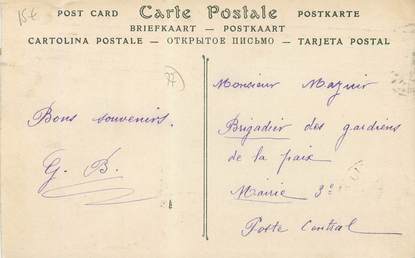 15€
POST CARD Carte Postale POSTKARTE
BRIEFKAART — POSTKAART
CARTOLINA POSTALE — ОТКРЫТОЕ ПИСЬМО — TARJETA POSTAL
77
Bons souvenirs.
G. B.
Monsieur Mazuir
Brigadier des gardiens
de la paix
Mairie 3e
Poste Central